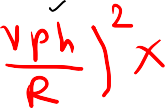 vph
R
)² x